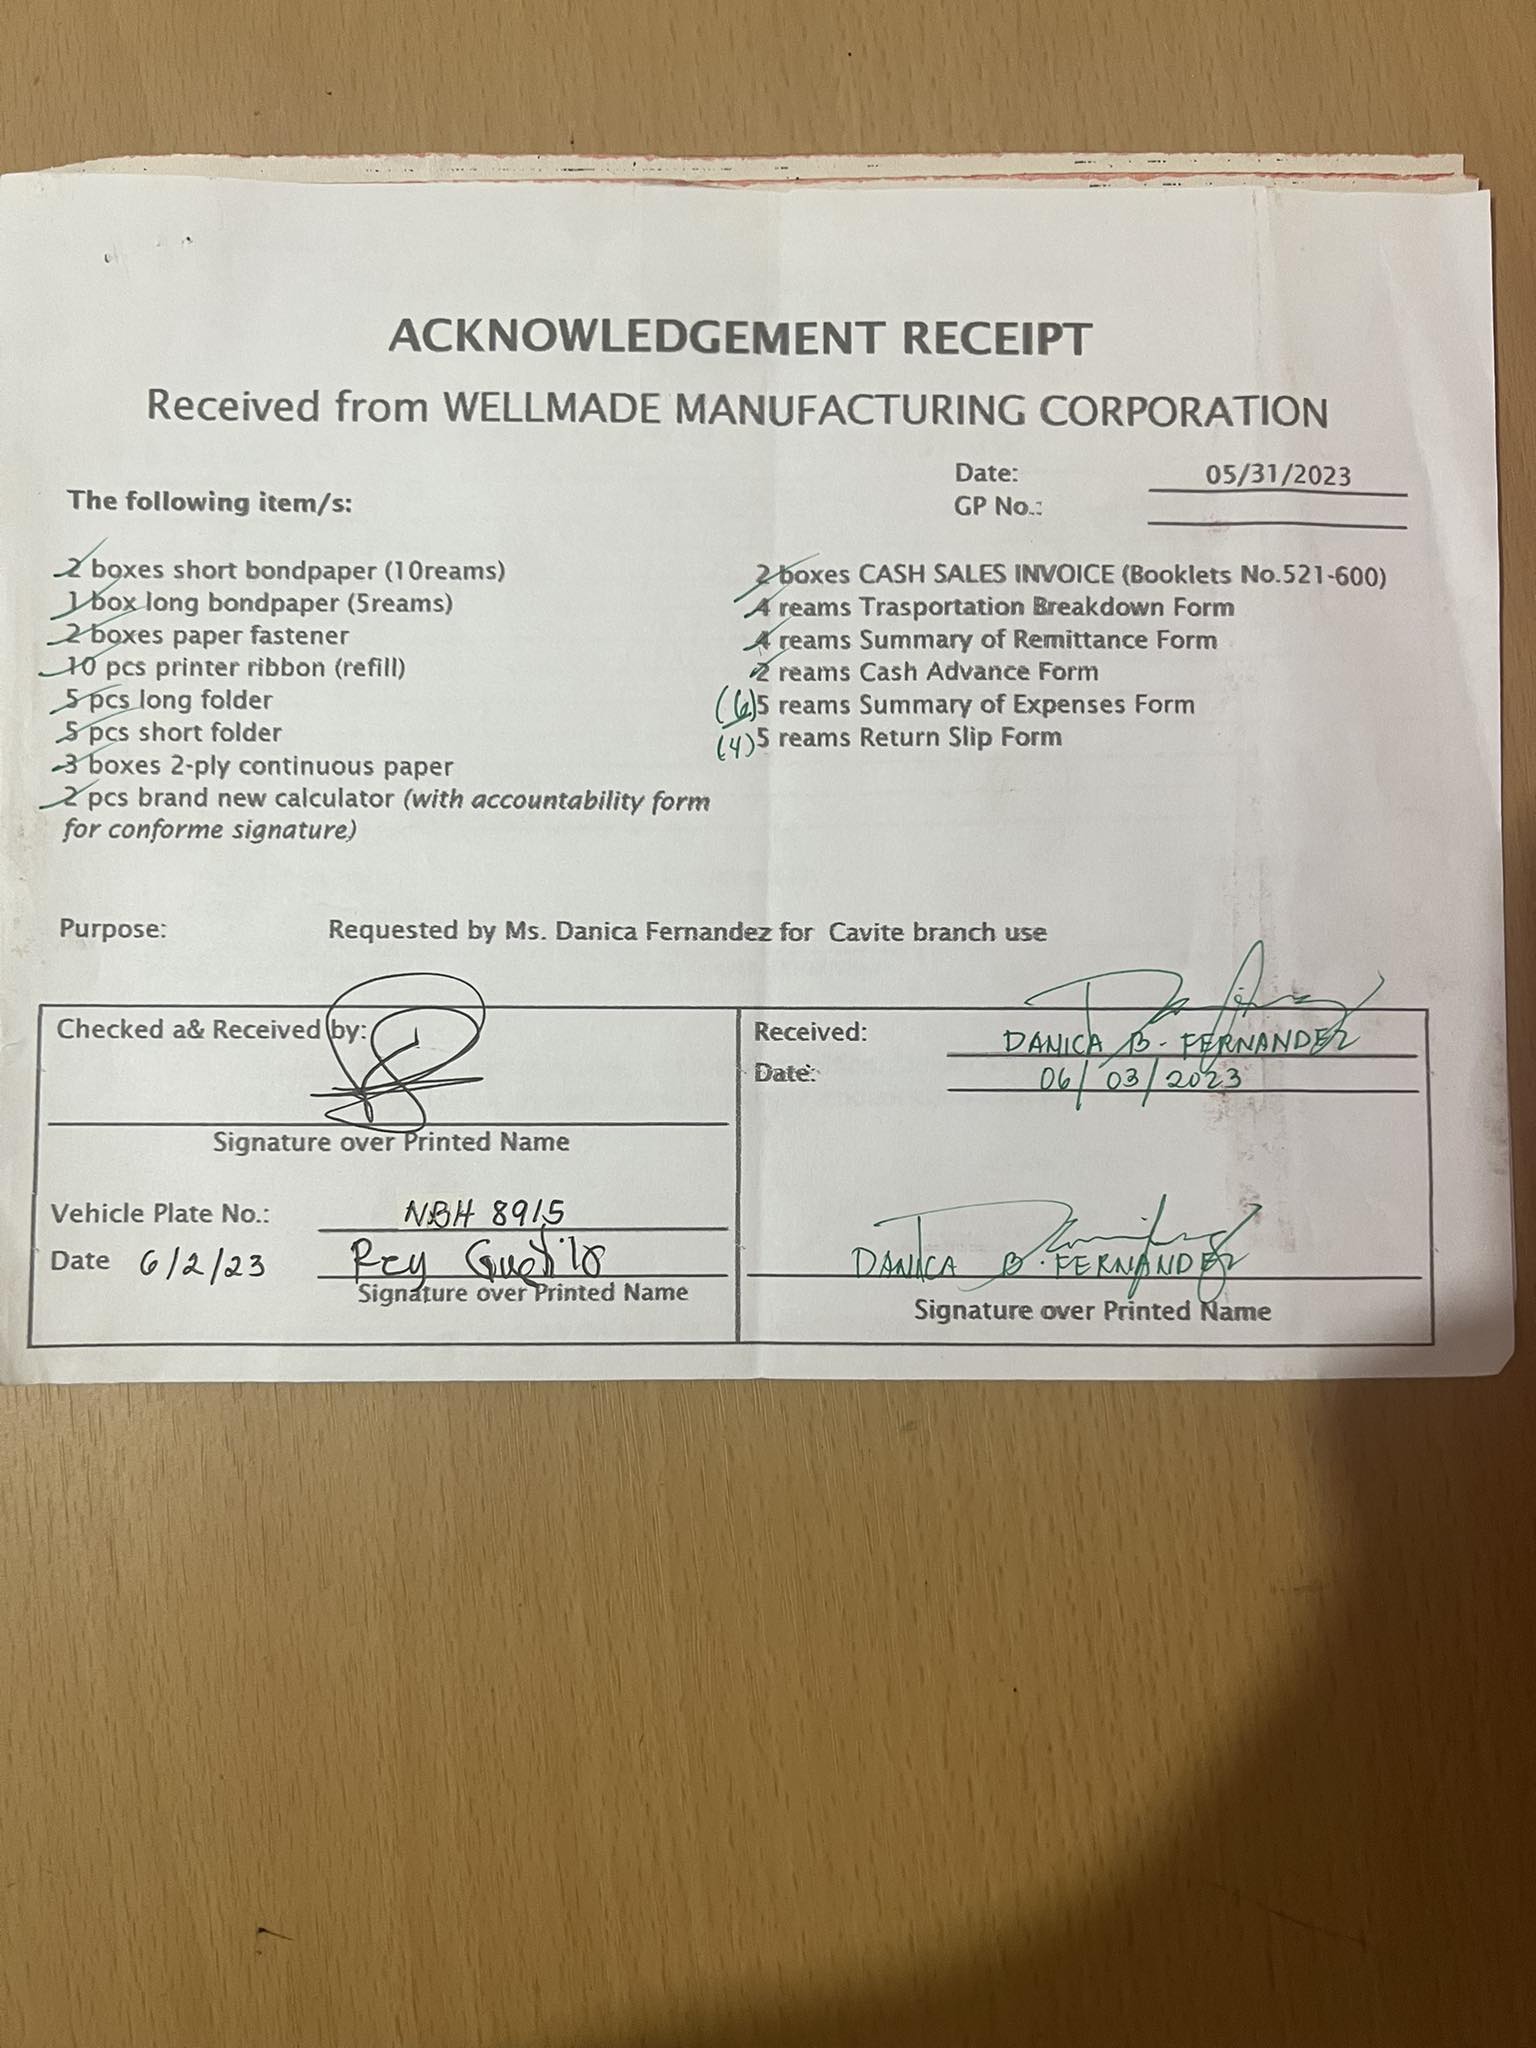 ACKNOWLEDGEMENT RECEIPT
Received from WELLMADE MANUFACTURING CORPORATION
Date: 05/31/2023
GP No.:
The following item/s:
2 boxes short bondpaper (10reams)
1 box long bondpaper (5reams)
2 boxes paper fastener
10 pcs printer ribbon (refill)
5 pcs long folder
5 pcs short folder
3 boxes 2-ply continuous paper
2 pcs brand new calculator (with accountability form
for conforme signature)
2 boxes CASH SALES INVOICE (Booklets No.521-600)
4 reams Trasportation Breakdown Form
4 reams Summary of Remittance Form
2 reams Cash Advance Form
(6) 5 reams Summary of Expenses Form
(4) 5 reams Return Slip Form
Purpose: Requested by Ms. Danica Fernandez for Cavite branch use
Checked a& Received by:
Signature over Printed Name
Vehicle Plate No.: NBH 8915
Date 6/2/23 Rey
Signature over Printed Name
Received: DANICA B. FERNANDEZ
Date: 06/03/2023
DANICA B. FERNANDEZ
Signature over Printed Name